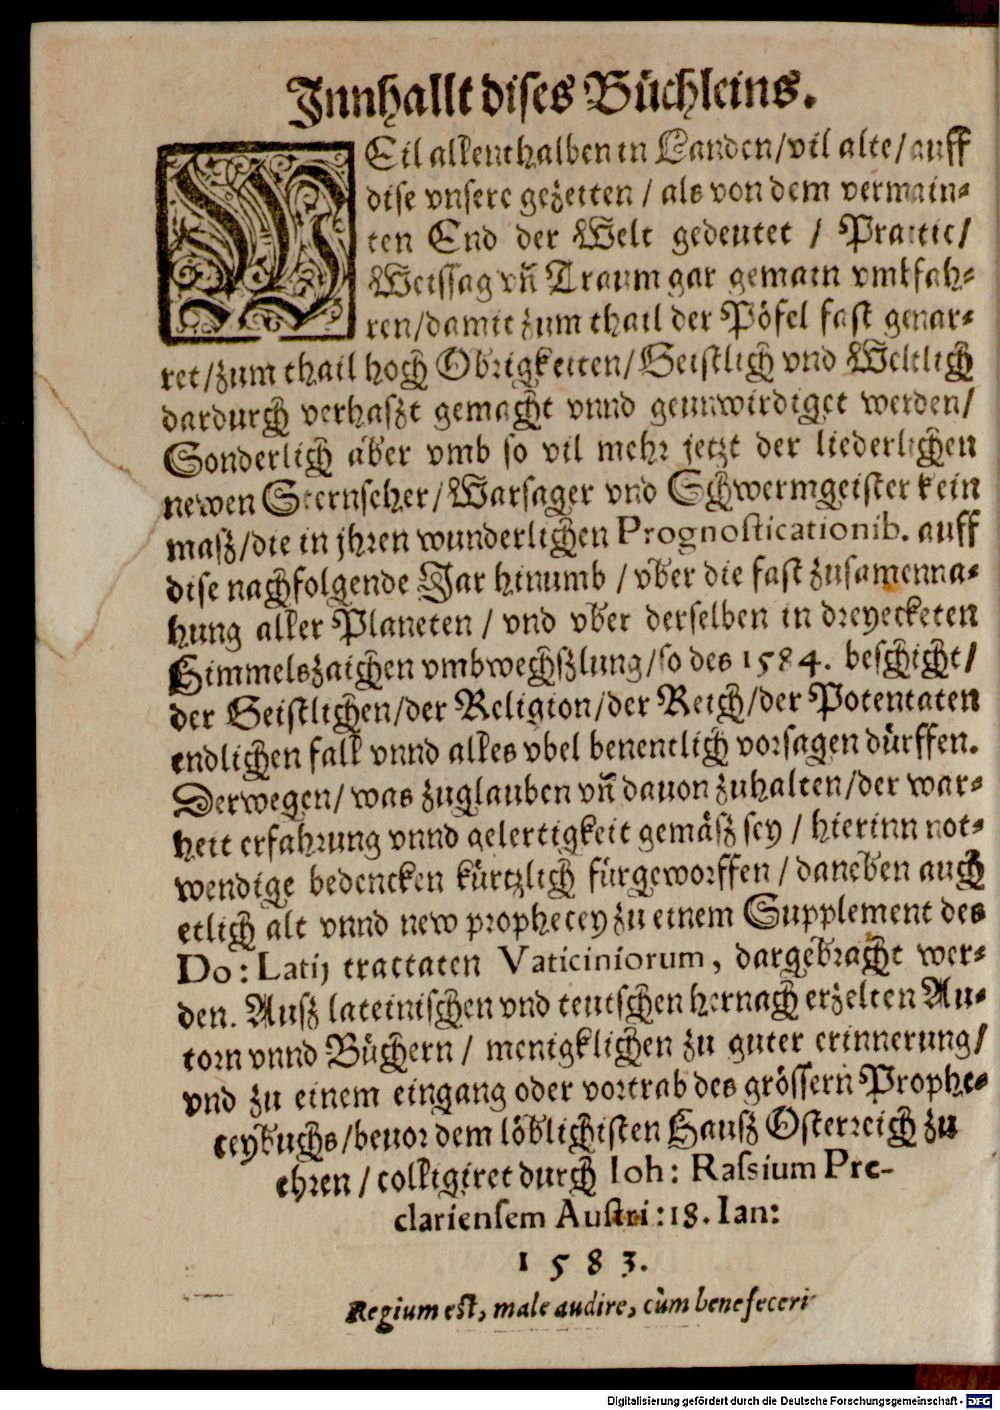 Jnnhallt dises Büchleins.
WEil allenthalben in Landen/vil alte/auff
dise vnsere gezeiten / als von dem vermain-
ten End der Welt gedeutet / Practic/
Weissag vñ Traum gar gemain vmbfah-
ren/damit zum thail der Pöfel fast genar-
ret/zum thail hoch Obrigkeiten/Geistlich vnd Weltlich
dardurch verhaszt gemacht vnnd geunwirdiget werden/
Sonderlich aber vmb so vil mehr jetzt der liederlichen
newen Sternseher/Warsager vnd Schwermgeister kein
masz/die in jhren wunderlichen Prognosticationib. auff
dise nachfolgende Jar hinumb / vber die fast zusamenna-
hung aller Planeten / vnd vber derselben in dreyecketen
Himmelszaichen vmbwechszlung/so des 1584. beschicht/
der Geistlichen/der Religion/der Reich/der Potentaten
endlichen fall vnnd alles vbel benentlich vorsagen dürffen.
Derwegen/ was zuglauben vñ dauon zuhalten/der war-
heit erfahrung vnnd gelertigkeit gemäsz sey / hierinn not-
wendige bedencken kürtzlich fürgeworffen / daneben auch
etlich alt vnnd new prophecey zu einem Supplement des
Do: Latij tractaten Vaticiniorum, dargebracht wer-
den. Ausz lateinischen vnd teutschen hernach erzelten Au-
torn vnnd Büchern / menigklichen zu guter erinnerung/
vnd zu einem eingang oder vortrab des grössern Prophe-
ceybuchs/beuor dem löblichisten Hausz Osterreich zu
ehren / colligiret durch Ioh: Rassium Pre-
clariensem Austri: 18. Ian:
1 5 8 3.
Regium est, male audire, cùm benefeceri
Digitalisierung gefördert durch die Deutsche Forschungsgemeinschaft - DFG